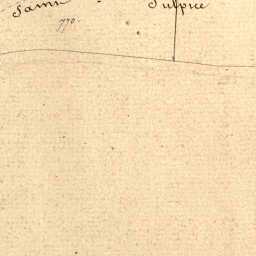 Saint Sulpice
770.